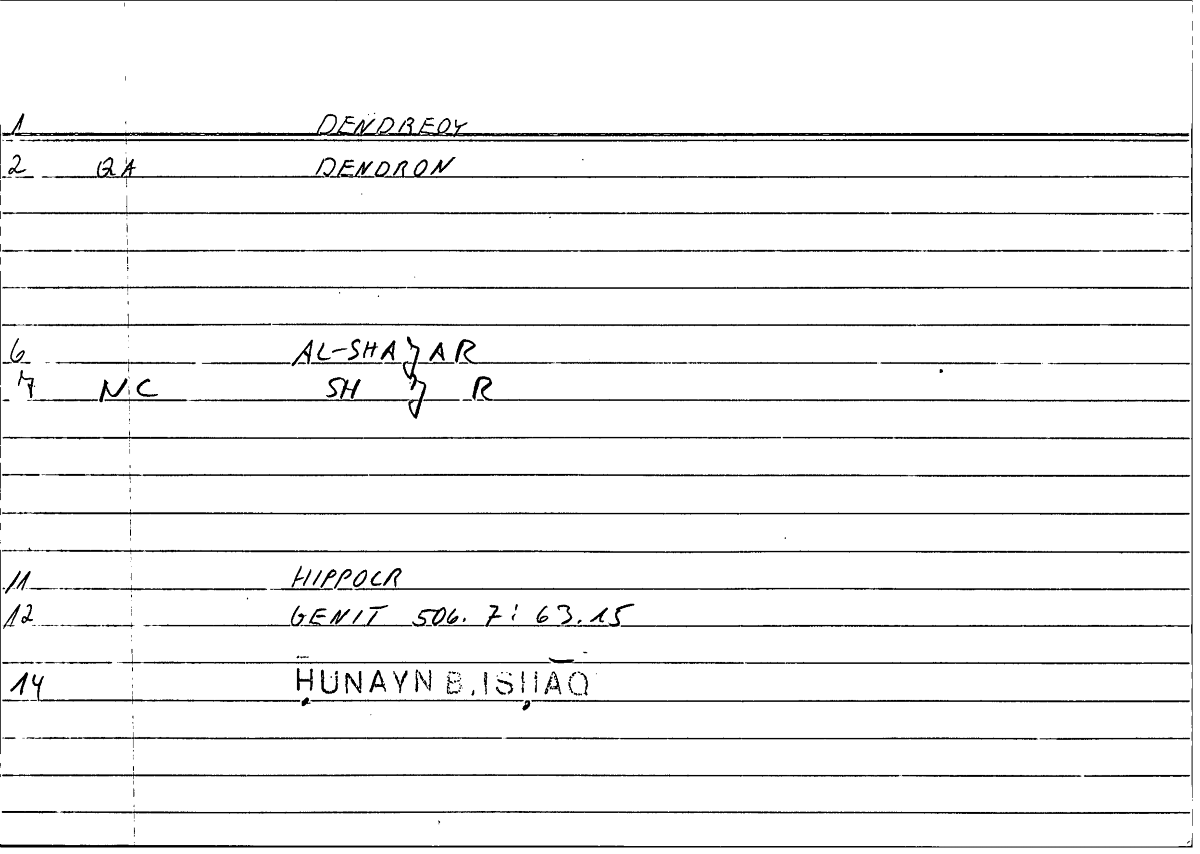 1 DENDREOY
2 QA DENDRON
6 AL-SHAǦAR
7 NC SH Ǧ R
11 HIPPOCR
12 GENIT 506. 7: 63.15
14 ḤUNAYN B. ISḤĀQ